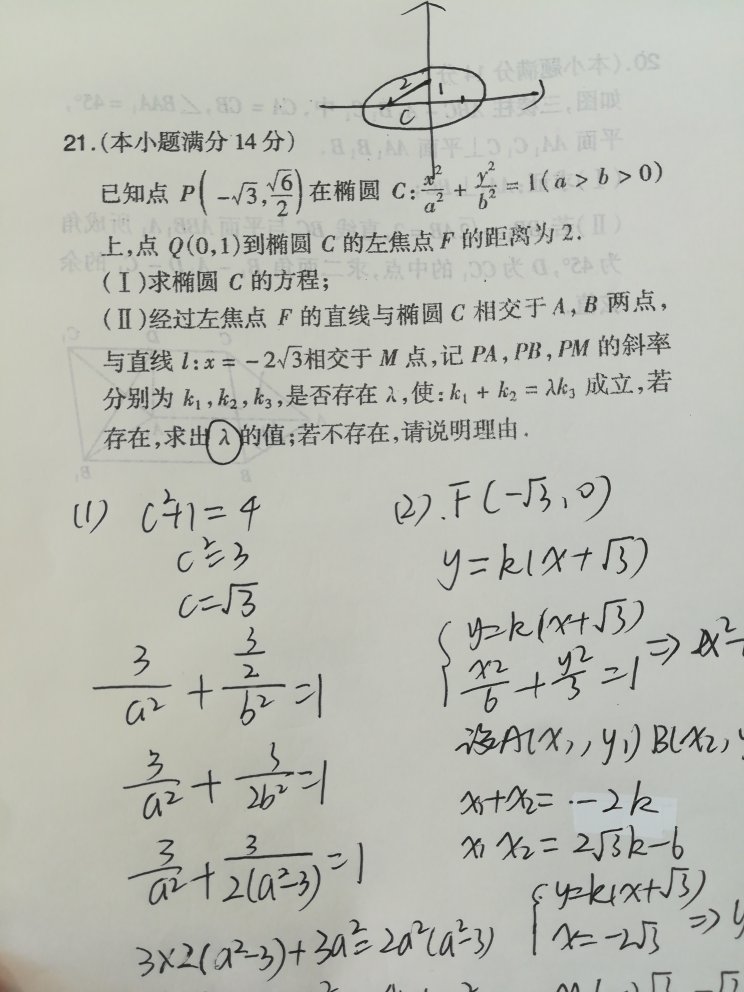 2
1
C
21.(本小题满分 14 分)
已知点 P(-√3, √6/2) 在椭圆 C: x²/a² + y²/b² = 1(a > b > 0)
上,点 Q(0,1)到椭圆 C 的左焦点 F 的距离为 2.
(Ⅰ)求椭圆 C 的方程;
(Ⅱ)经过左焦点 F 的直线与椭圆 C 相交于 A,B 两点,
与直线 l:x = -2√3相交于 M 点,记 PA,PB,PM 的斜率
分别为 k₁,k₂,k₃,是否存在 λ,使:k₁ + k₂ = λk₃ 成立,若
存在,求出 λ 的值;若不存在,请说明理由.
(1) c²+1=4
c²=3
c=√3
3/a² + (3/2)/b² =1
3/a² + 3/2b² =1
3/a² + 3/2(a²-3) =1
3×2(a²-3)+3a²=2a²(a²-3)
(2). F(-√3,0)
y=k(x+√3)
{y=k(x+√3)
x²/6 + y²/3 =1 ⇒
设A(x₁,y₁) B(x₂,y
x₁+x₂=-2k
x₁x₂=2√3k-6
{y=k(x+√3)
x=-2√3 ⇒ y